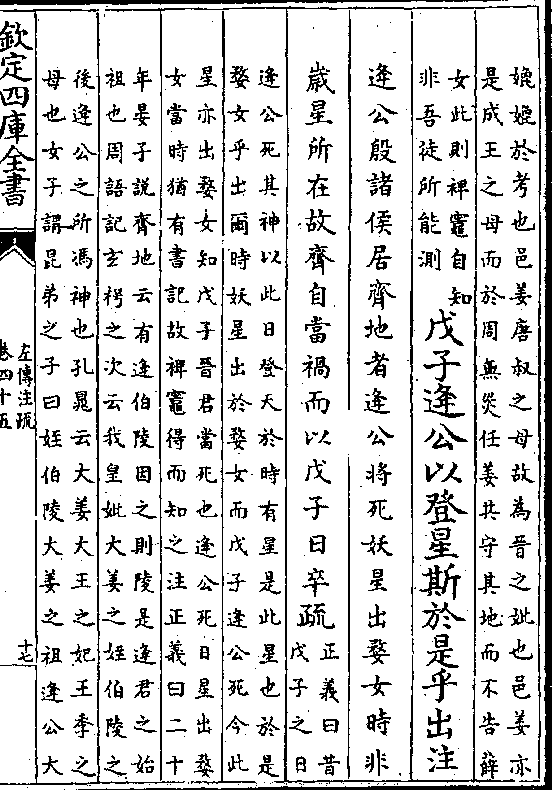 媲媲於考也邑姜唐叔之母故為晉之妣也邑姜亦
是成王之母而於周無災任姜共守其地而不告薛
女此則裨竈自知
非吾徒所能測
戊子逄公以登星斯於是乎出注
逄公殷諸侯居齊地者逄公將死妖星出婺女時非
歳星所在故齊自當禍而以戊子日卒疏
正義曰昔
戊子之日
逄公死其神以此日登天於時有星是此星也於是
婺女乎出爾時妖星出於婺女而戊子逄公死今此
星亦出婺女知戊子晉君當死也逄公死日星出婺
女當時猶有書記故裨竈得而知之注正義曰二十
年晏子說齊地云有逄伯陵因之則陵是逄君之始
祖也周語記玄枵之次云我皇妣大姜之姪伯陵之
後逄公之所馮神也孔晁云大姜大王之妃王季之
母也女子謂昆弟之子曰姪伯陵大姜之祖逄公大
欽定四庫全書
左傳注疏
卷四十五
十七